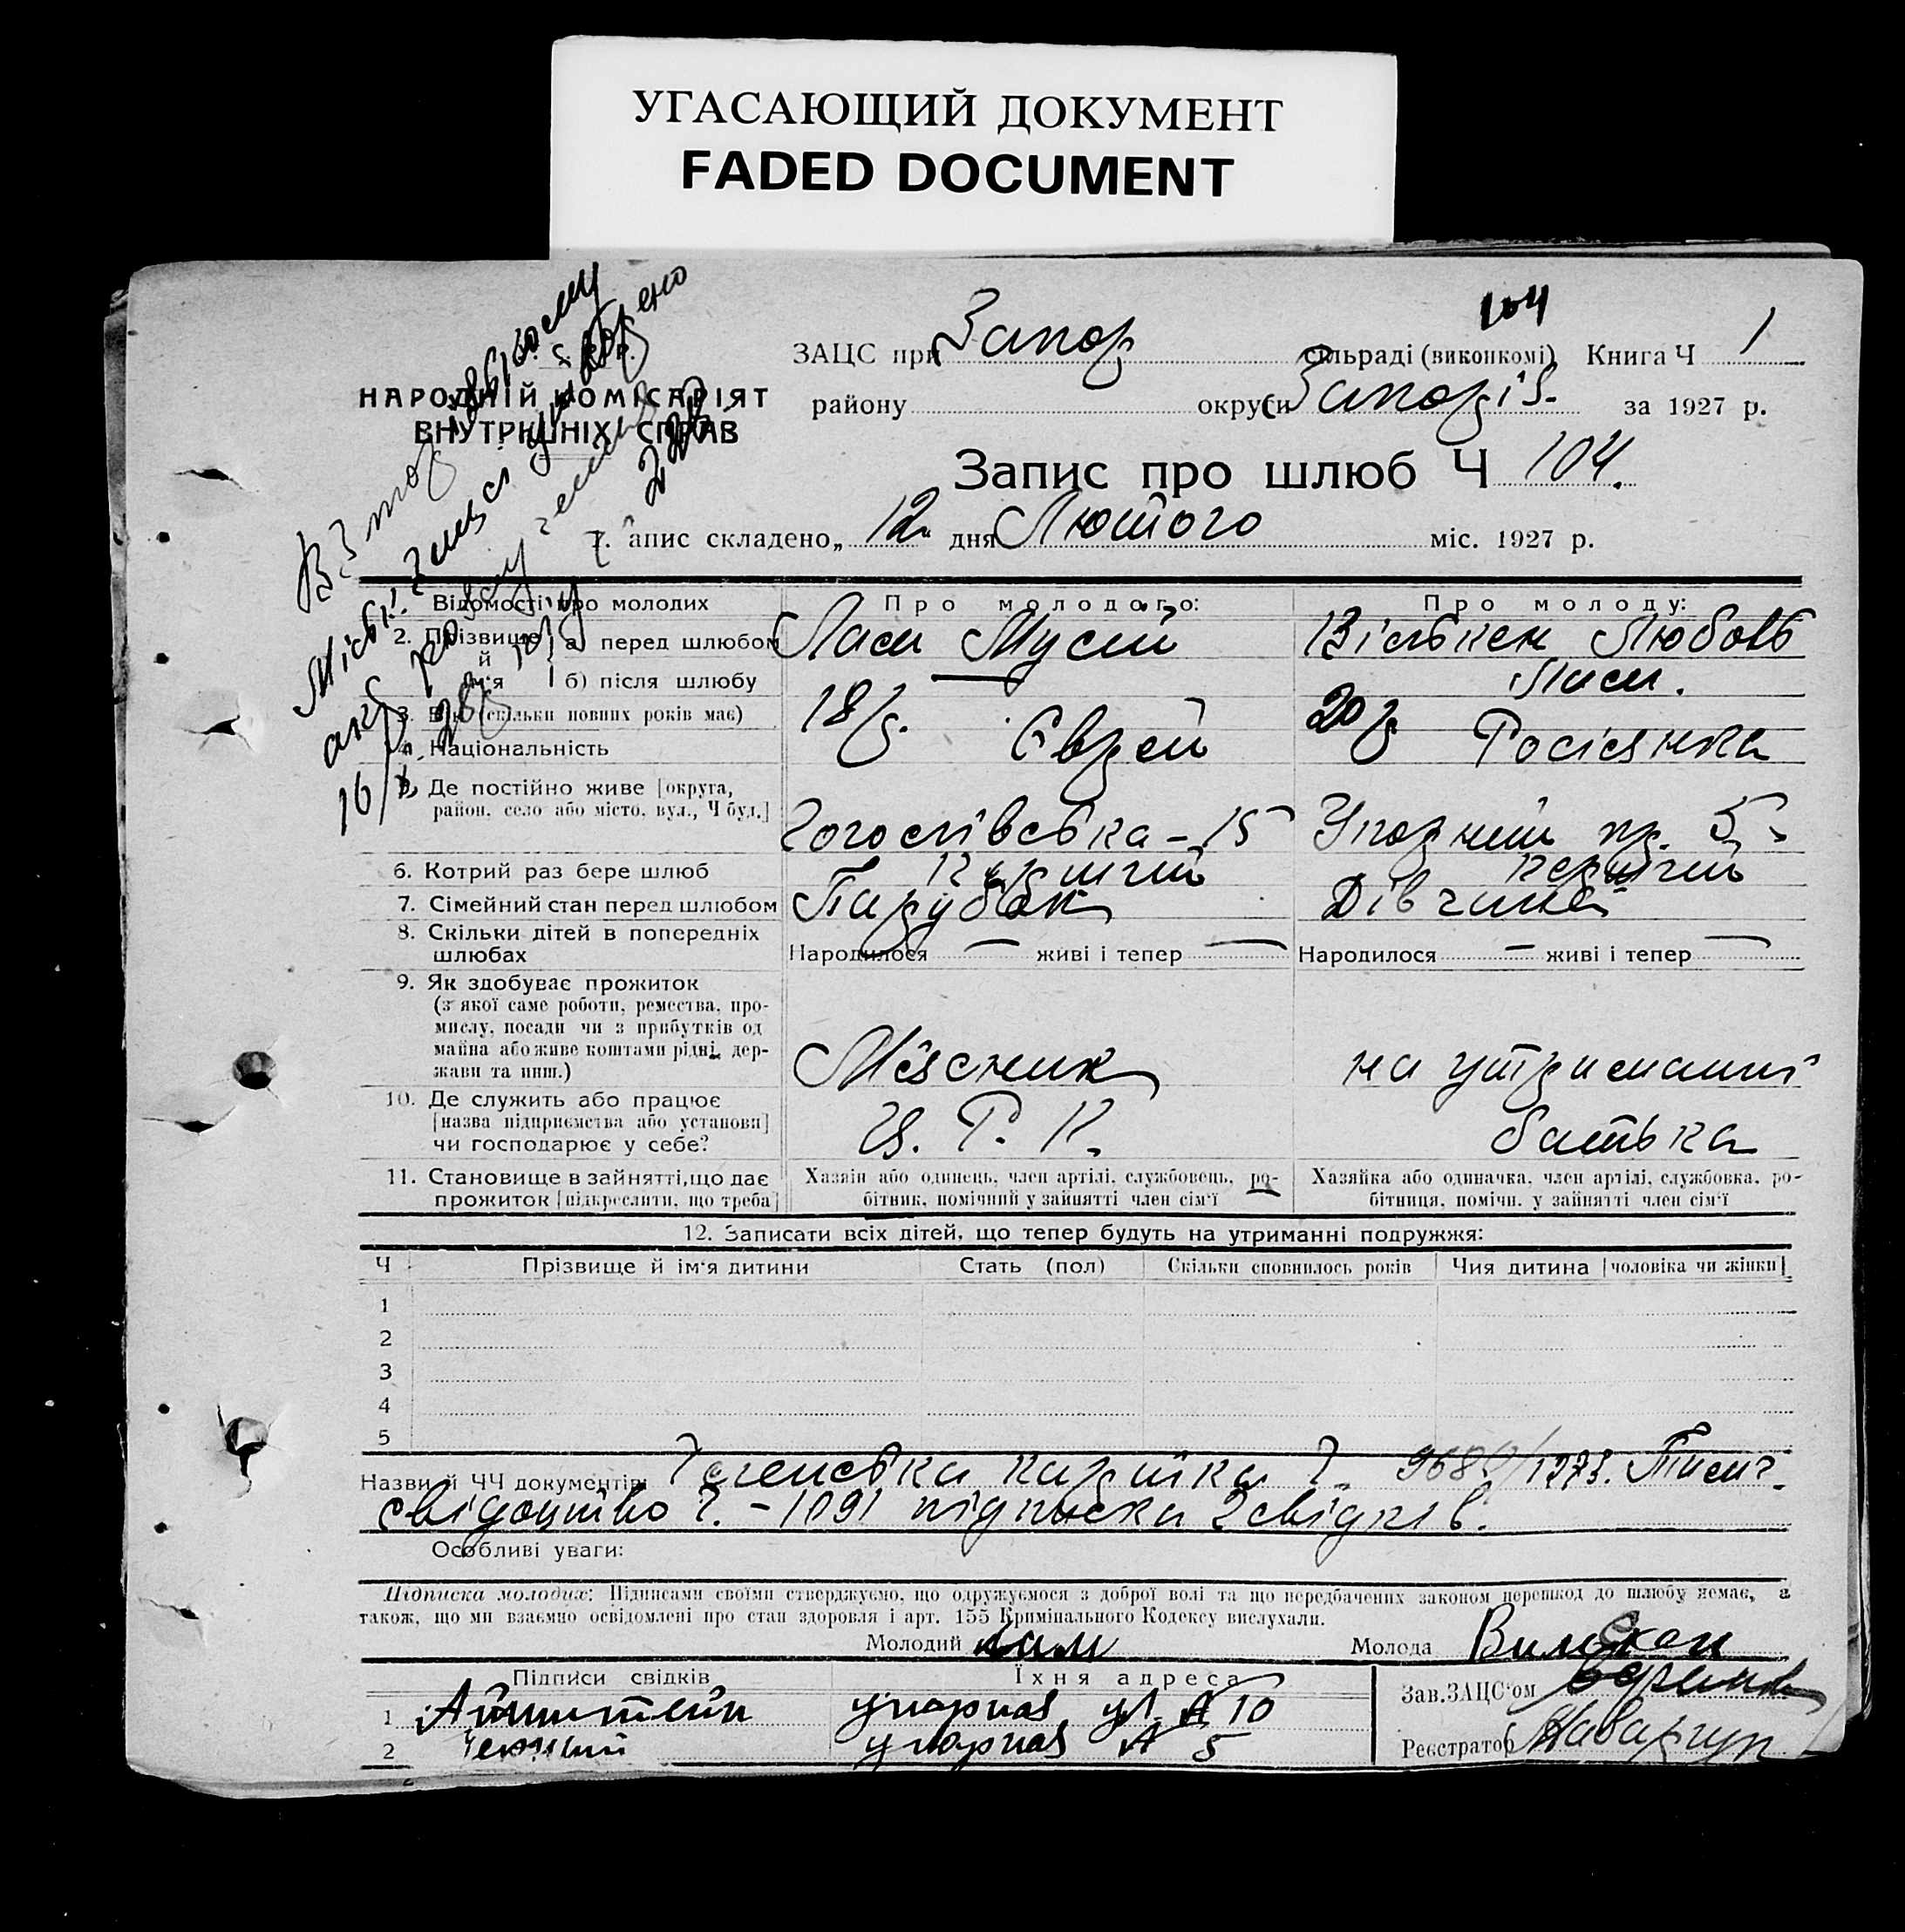 УГАСАЮЩИЙ ДОКУМЕНТ
FADED DOCUMENT
104
ЗАЦС при Запор сільраді (виконкомі) Книга Ч 1
НАРОДНІЙ КОМІСАРІЯТ
ВНУТРІШНІХ СПРАВ
району округи Запоріз. за 1927 р.
Запис про шлюб Ч 104.
1. Запис складено „12" дня Лютого міс. 1927 р.
Відомості про молодих
Про молодого:
Про молоду:
2. Прізвище й ім'я
а) перед шлюбом Лам Мусій Вількен Любовь
б) після шлюбу Лам.
3. Вік (скільки повних років має) 18 р. 20 р.
4. Національність Єврей Росіянка
5. Де постійно живе [округа,
район, село або місто, вул., Ч буд.]
Гоголівська – 15 Упорний пр. 5
6. Котрий раз бере шлюб Перший Перший
7. Сімейний стан перед шлюбом Парубок Дівчина
8. Скільки дітей в попередніх
шлюбах Народилося — живі і тепер — Народилося — живі і тепер —
9. Як здобуває прожиток
(з якої саме роботи, ремества, про-
мислу, посади чи з прибутків од
майна або живе коштами рідні, дер-
жави та инш.)
Мясник на утриманні
10. Де служить або працює
[назва підприємства або установи]
чи господарює у себе?
Ц. Р. К. батька
11. Становище в зайнятті, що дає
прожиток [підкреслити, що треба]
Хазяїн або одинець, член артілі, службовець, ро-
бітник, помічний у зайнятті член сім'ї
Хазяйка або одиначка, член артілі, службовка, ро-
бітниця, помічн. у зайнятті член сім'ї
12. Записати всіх дітей, що тепер будуть на утриманні подружжя:
Ч Прізвище й ім'я дитини Стать (пол) Скільки сповнилось років Чия дитина [чоловіка чи жінки]
1
2
3
4
5
Назви й ЧЧ документів: Членська картка Ч.
свідоцтво Ч. – 1091 підписка 2 свідків.
Особливі уваги:
Підписка молодих: Підписами своїми стверджуємо, що одружуємося з доброї волі та що передбачених законом перешкод до шлюбу немає, а
також, що ми взаємно освідомлені про стан здоровля і арт. 155 Кримінального Кодексу вислухали.
Молодий Лам Молода Вилькен
Підписи свідків Їхня адреса
Зав. ЗАЦС'ом
1 Айнштейн упорная ул. № 10
Реєстратор
2 упорная № 5